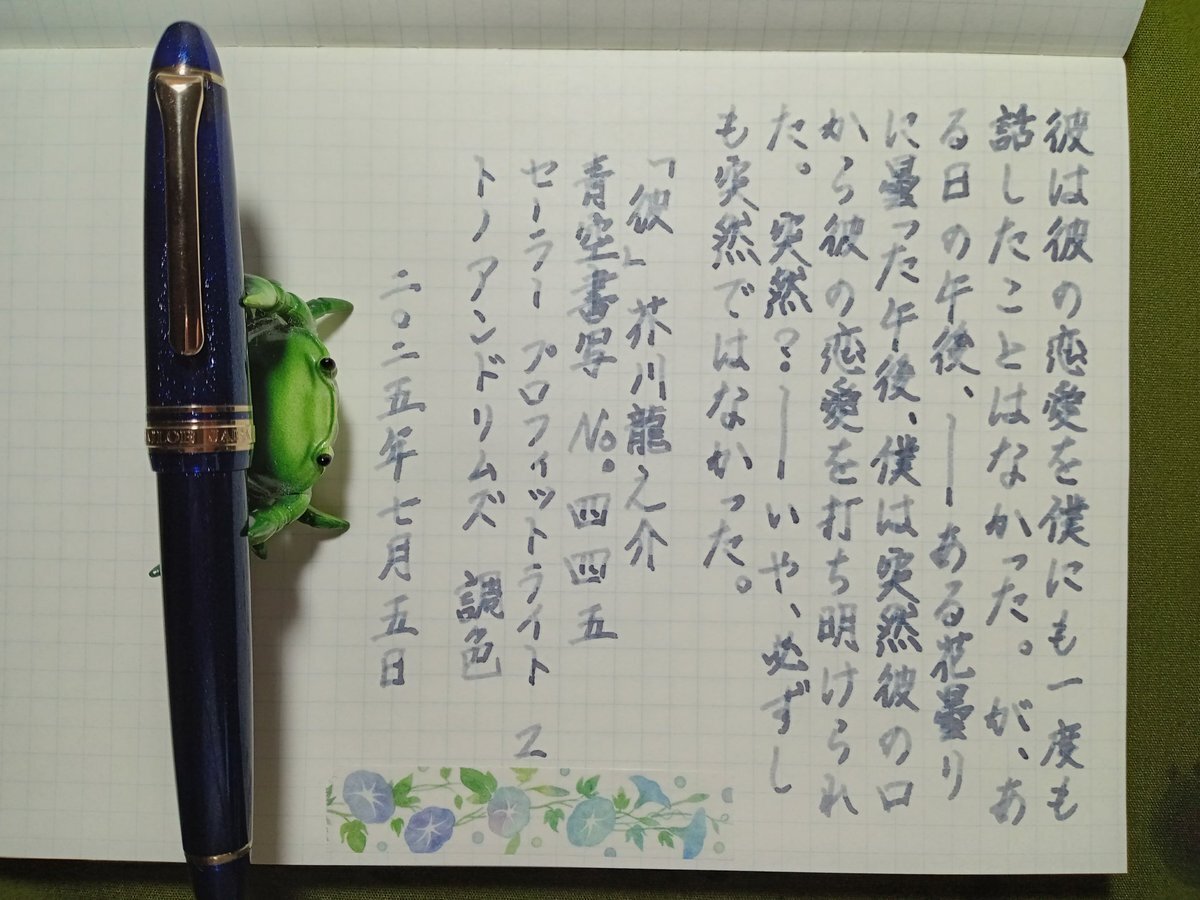 彼は彼の恋愛を僕にも一度も
話したことはなかった。が、あ
る日の午後、――ある花曇り
に曇った午後、僕は突然彼の口
から彼の恋愛を打ち明けられ
た。突然?――いや、必ずし
も突然ではなかった。
「彼」芥川龍之介
青空書写 No.四四五
セーラー プロフィットライト Z
トノアンドリムズ 調色
二〇二五年七月五日